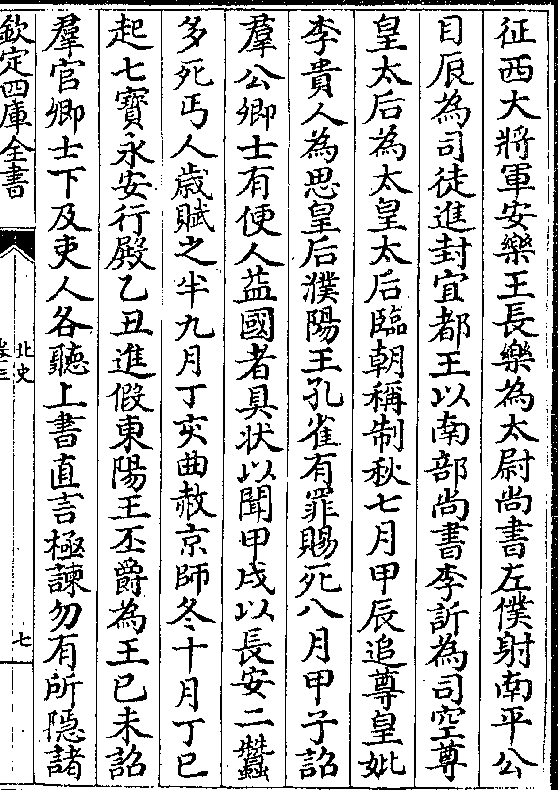 征西大將軍安樂王長樂為太尉尚書左僕射南平公
目辰為司徒進封宜都王以南部尚書李訢為司空尊
皇太后為太皇太后臨朝稱制秋七月甲辰追尊皇妣
李貴人為思皇后濮陽王孔雀有罪賜死八月甲子詔
羣公卿士有便人益國者具状以聞甲戌以長安二蠶
多死丐人歲賦之半九月丁亥曲赦京師冬十月丁巳
起七寳永安行殿乙丑進假東陽王丕爵為王已未詔
羣官卿士下及吏人各聽上書直言極諫勿有所隱諸
欽定四庫全書
北史
卷三
七